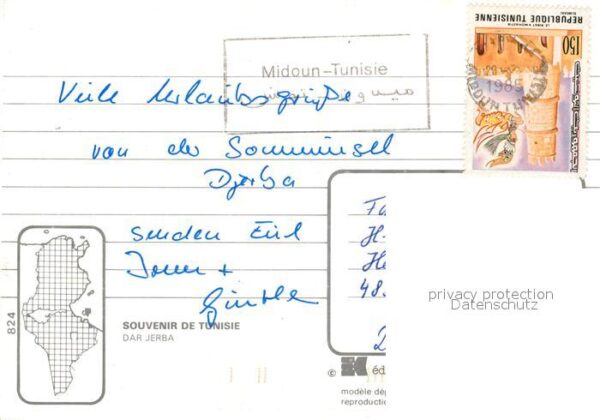 Midoun-Tunisie
REPUBLIQUE TUNISIENNE
150
1985
MIDOUN TUNISIE
Viele Urlaubsgrüße
von der Sonneninsel
Djerba
senden Eich
+
Günther
H-
48.
privacy protection
Datenschutz
824
SOUVENIR DE TUNISIE
DAR JERBA
©
éd
modèle dép
reproductio